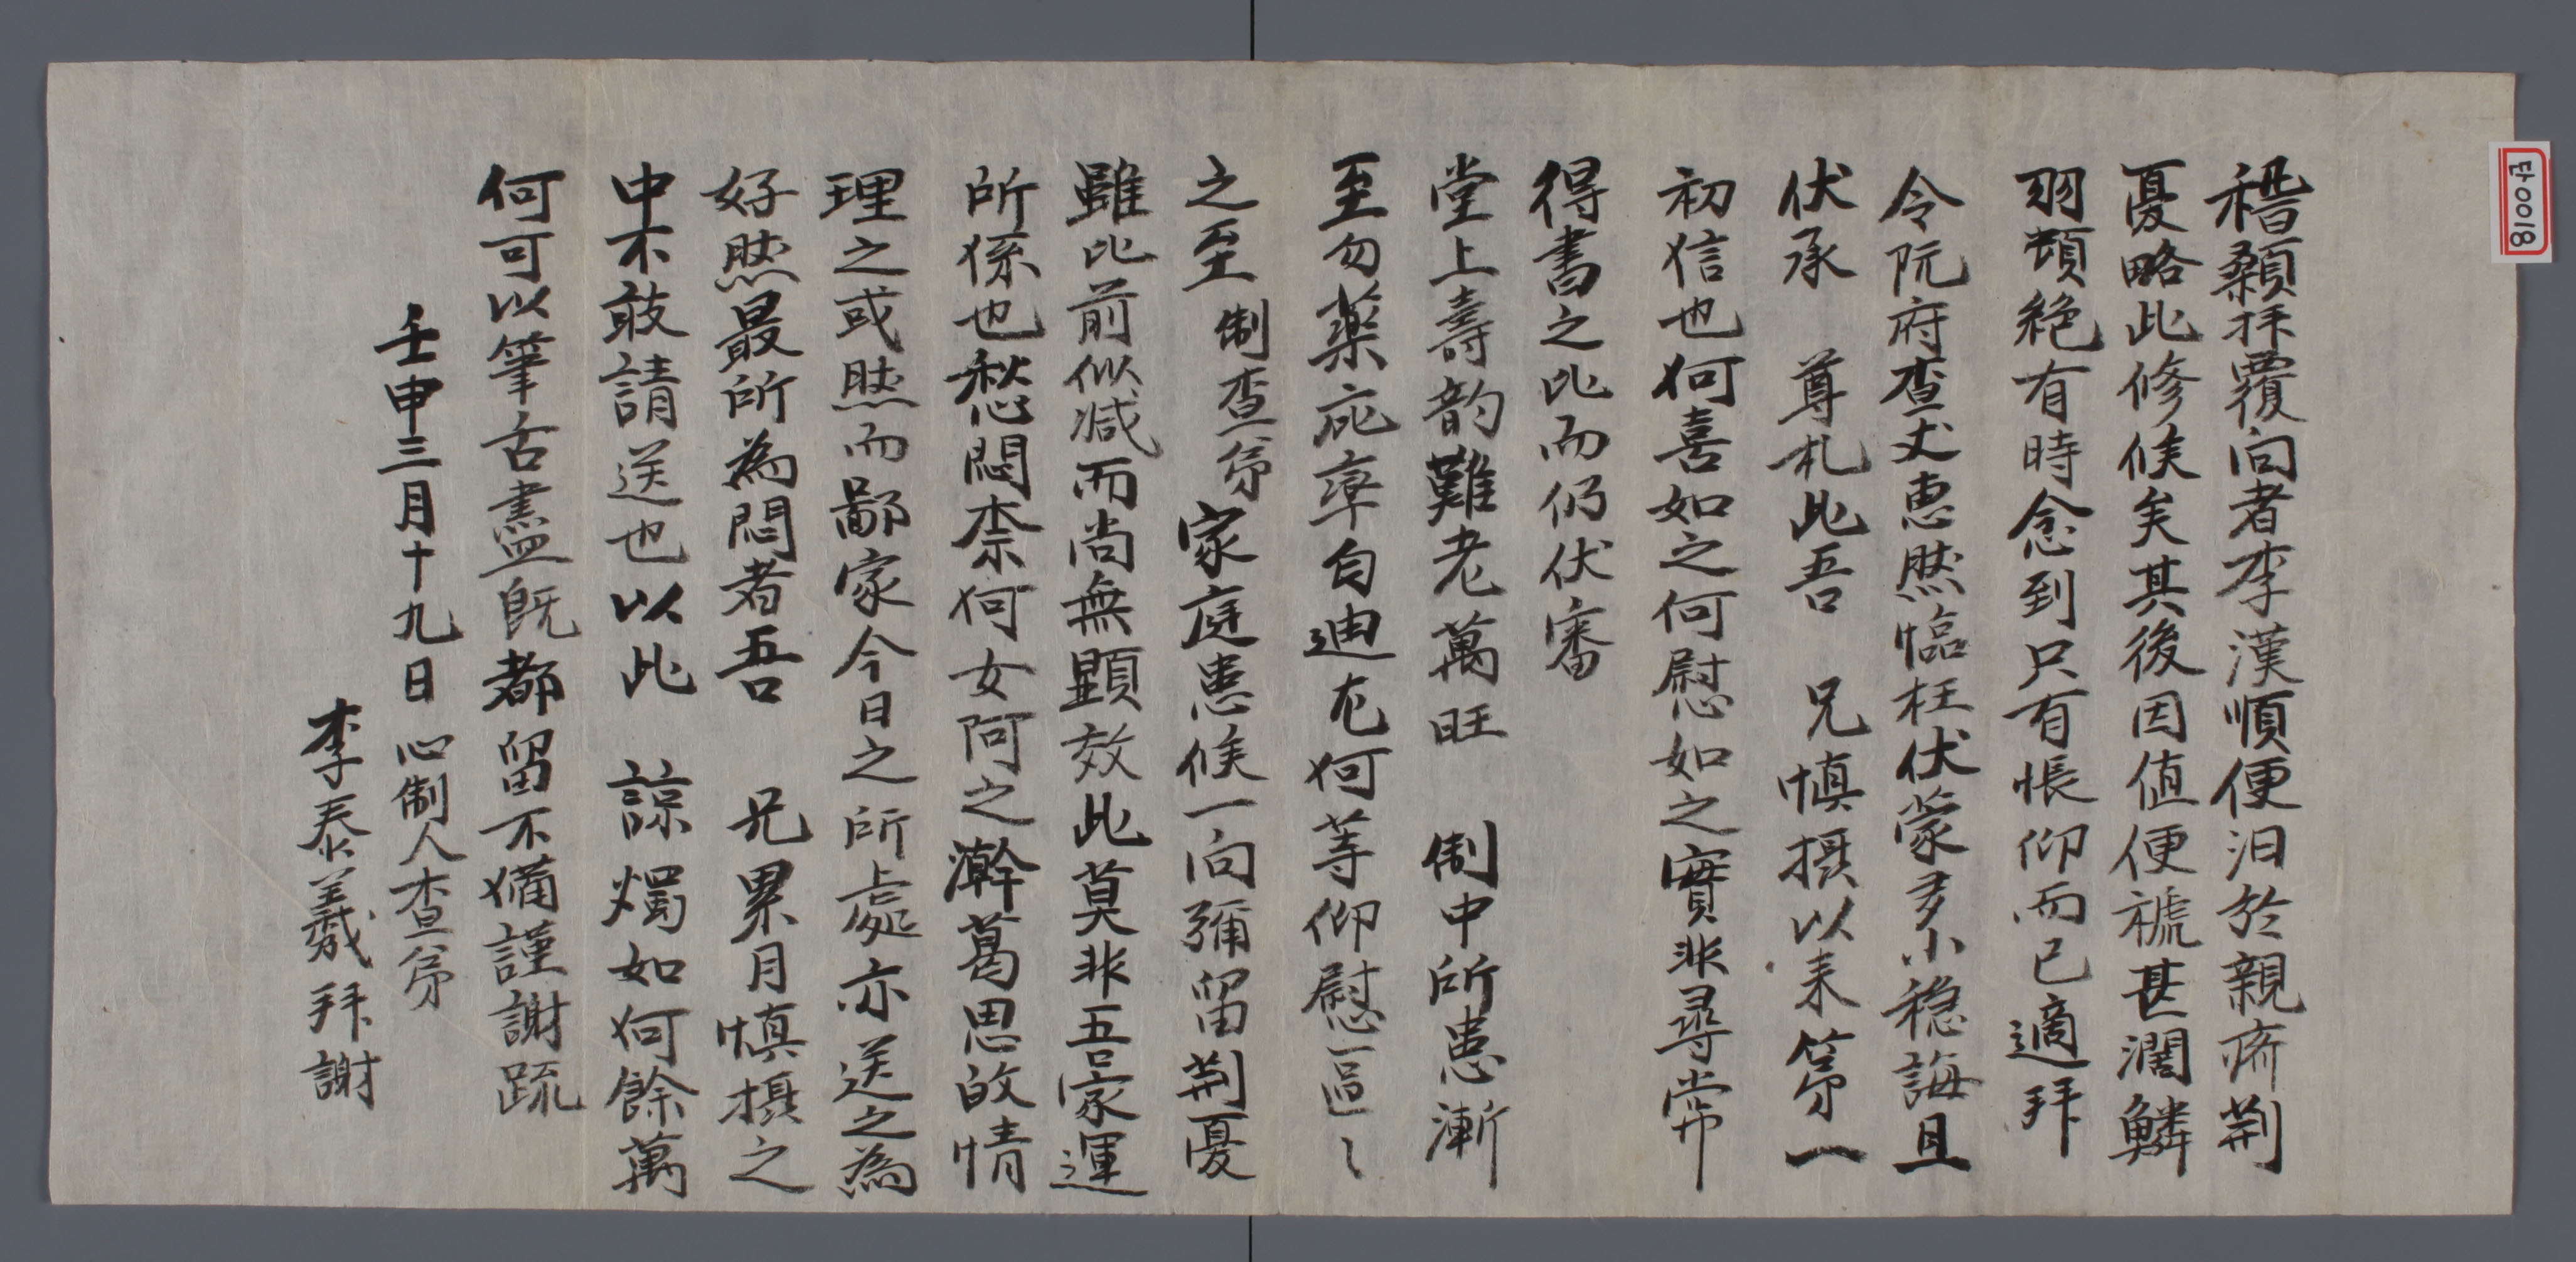 稽顙拜覆向者李漢順便汨於親癠荆
憂略此修候矣其後因値便褫甚濶鱗
羽頓絶有時念到只有悵仰而已適拜
令阮府査丈惠然臨枉伏蒙多小穩誨且
伏承 尊札此吾 兄愼攝以来第一
初信也何喜如之何慰如之實非尋常
得書之比而仍伏審
堂上壽韵難老萬旺 制中所患漸
至勿藥庇率自迪尤何等仰慰區〻
之至制査弟家庭患候一向彌留荆憂
雖比前似减而尚無顯效此莫非吾家運
所係也愁悶柰何女阿之澣葛思的情
理之或然而鄙家今日之所處亦送之為
好然最所為悶者吾 兄累月愼攝之
中不敢請送也以此 諒燭如何餘萬
何可以筆舌盡旣都留不備謹謝疏
壬申三月十九日 心制人査弟
李泰羲拜謝
단0018